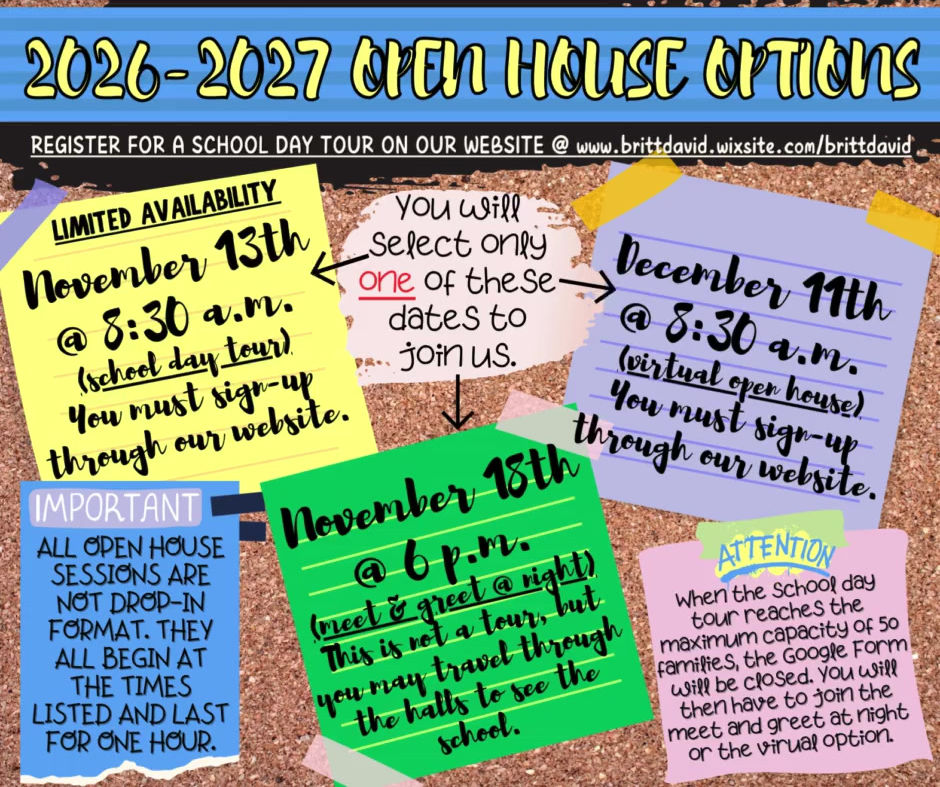 2026-2027 OPEN HOUSE OPTIONS
REGISTER FOR A SCHOOL DAY TOUR ON OUR WEBSITE @ www.brittdavid.wixsite.com/brittdavid
LIMITED AVAILABILITY
November 13th
@ 8:30 a.m.
(school day tour)
You must sign-up
through our website.
You will
select only
one of these
dates to
join us.
December 11th
@ 8:30 a.m.
(virtual open house)
You must sign-up
through our website.
November 18th
@ 6 p.m.
(meet & greet @ night)
This is not a tour, but
you may travel through
the halls to see the
school.
IMPORTANT
ALL OPEN HOUSE
SESSIONS ARE
NOT DROP-IN
FORMAT. THEY
ALL BEGIN AT
THE TIMES
LISTED AND LAST
FOR ONE HOUR.
ATTENTION
When the school day
tour reaches the
maximum capacity of 50
families, the Google Form
will be closed. You will
then have to join the
meet and greet at night
or the virual option.